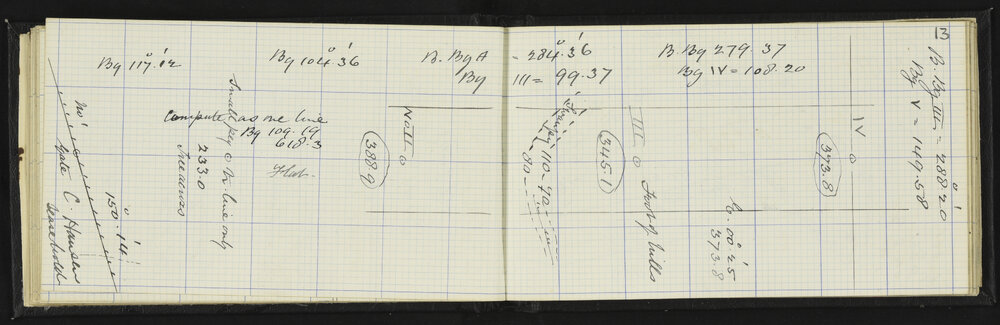 13
Bg 117.12
Bg 104.36
B. Bg A = 284.36
Bg III = 99.37
B Bg 279 37
Bg IV = 108.20
B. Bg III = 288.20
Bg V = 149.58
Small peg o in line only
233.0
Compute as one line
Bg 109.19
618.3
Flat
No II o
388.9
110 - 40
80
345.1
III o Foot of Hills
00 25
373.8
IV o
373.8
No 1
Gate C. Hansen
Leasehold
150.14